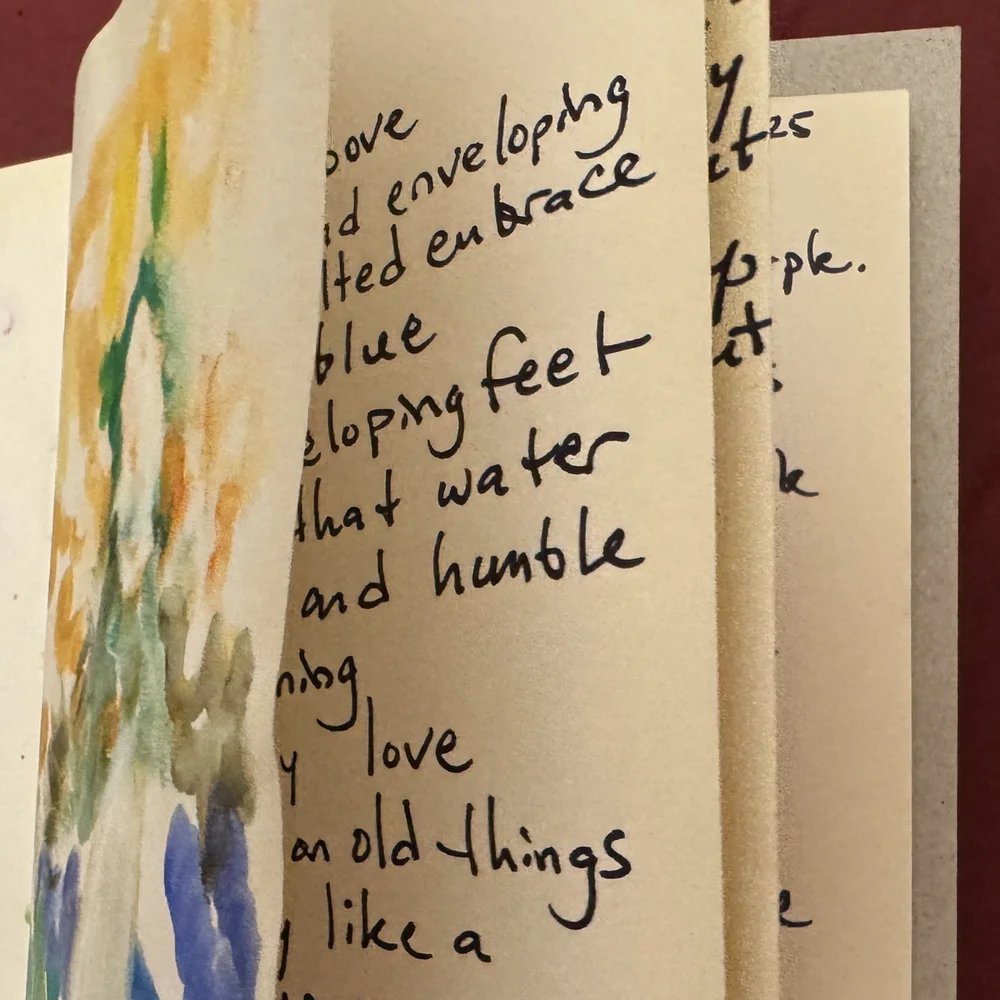 ove
d enveloping
lted embrace
blue
eloping feet
that water
and humble
ning
y love
an old things
y like a
y
it 25
p. pk.
it
k
e